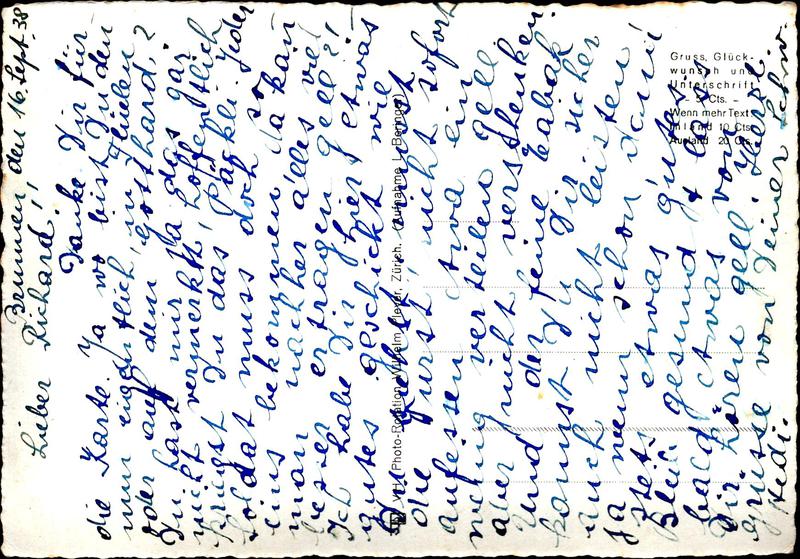 Brunnen den 16. Sept. 38
Lieber Richard!
Danke Dir für
die Karte. Ja wo bist Du den
nun eigentlich, in Flüelen
oder auf dem Gotthard?
Du hast mir ja das gar
nicht vermerkt! Hoffentlich
kriegst Du das Päckli. Jeder
Soldat muss doch so
eins bekommen da kan
man nachher alles viel
besser ertragen gell?!
Ich habe Dir hier etwas
gutes geschickt wie
Du siehst, musst
die Wurst nicht sofort
aufessen etwa ein
wenig verteilen gell
aber nicht verschenken.
Und der feine Tabak
konnst Du Dir sicher
auch nicht leisten
Ja nimm schon damit
stets etwas gutes!
Bleib gesund & lass
bald etwas von
Dir hören gell. Herzl.
Grüsse von Deiner Schw.
Hedi.
VHJ Photo-Rotation Wilhelm Pleyer, Zürich. (Aufnahme L. Beringer)
Gruss, Glück-
wunsch und
Unterschrift
– 5 Cts. –
Wenn mehr Text:
Inland 10 Cts.
Ausland 20 Cts.